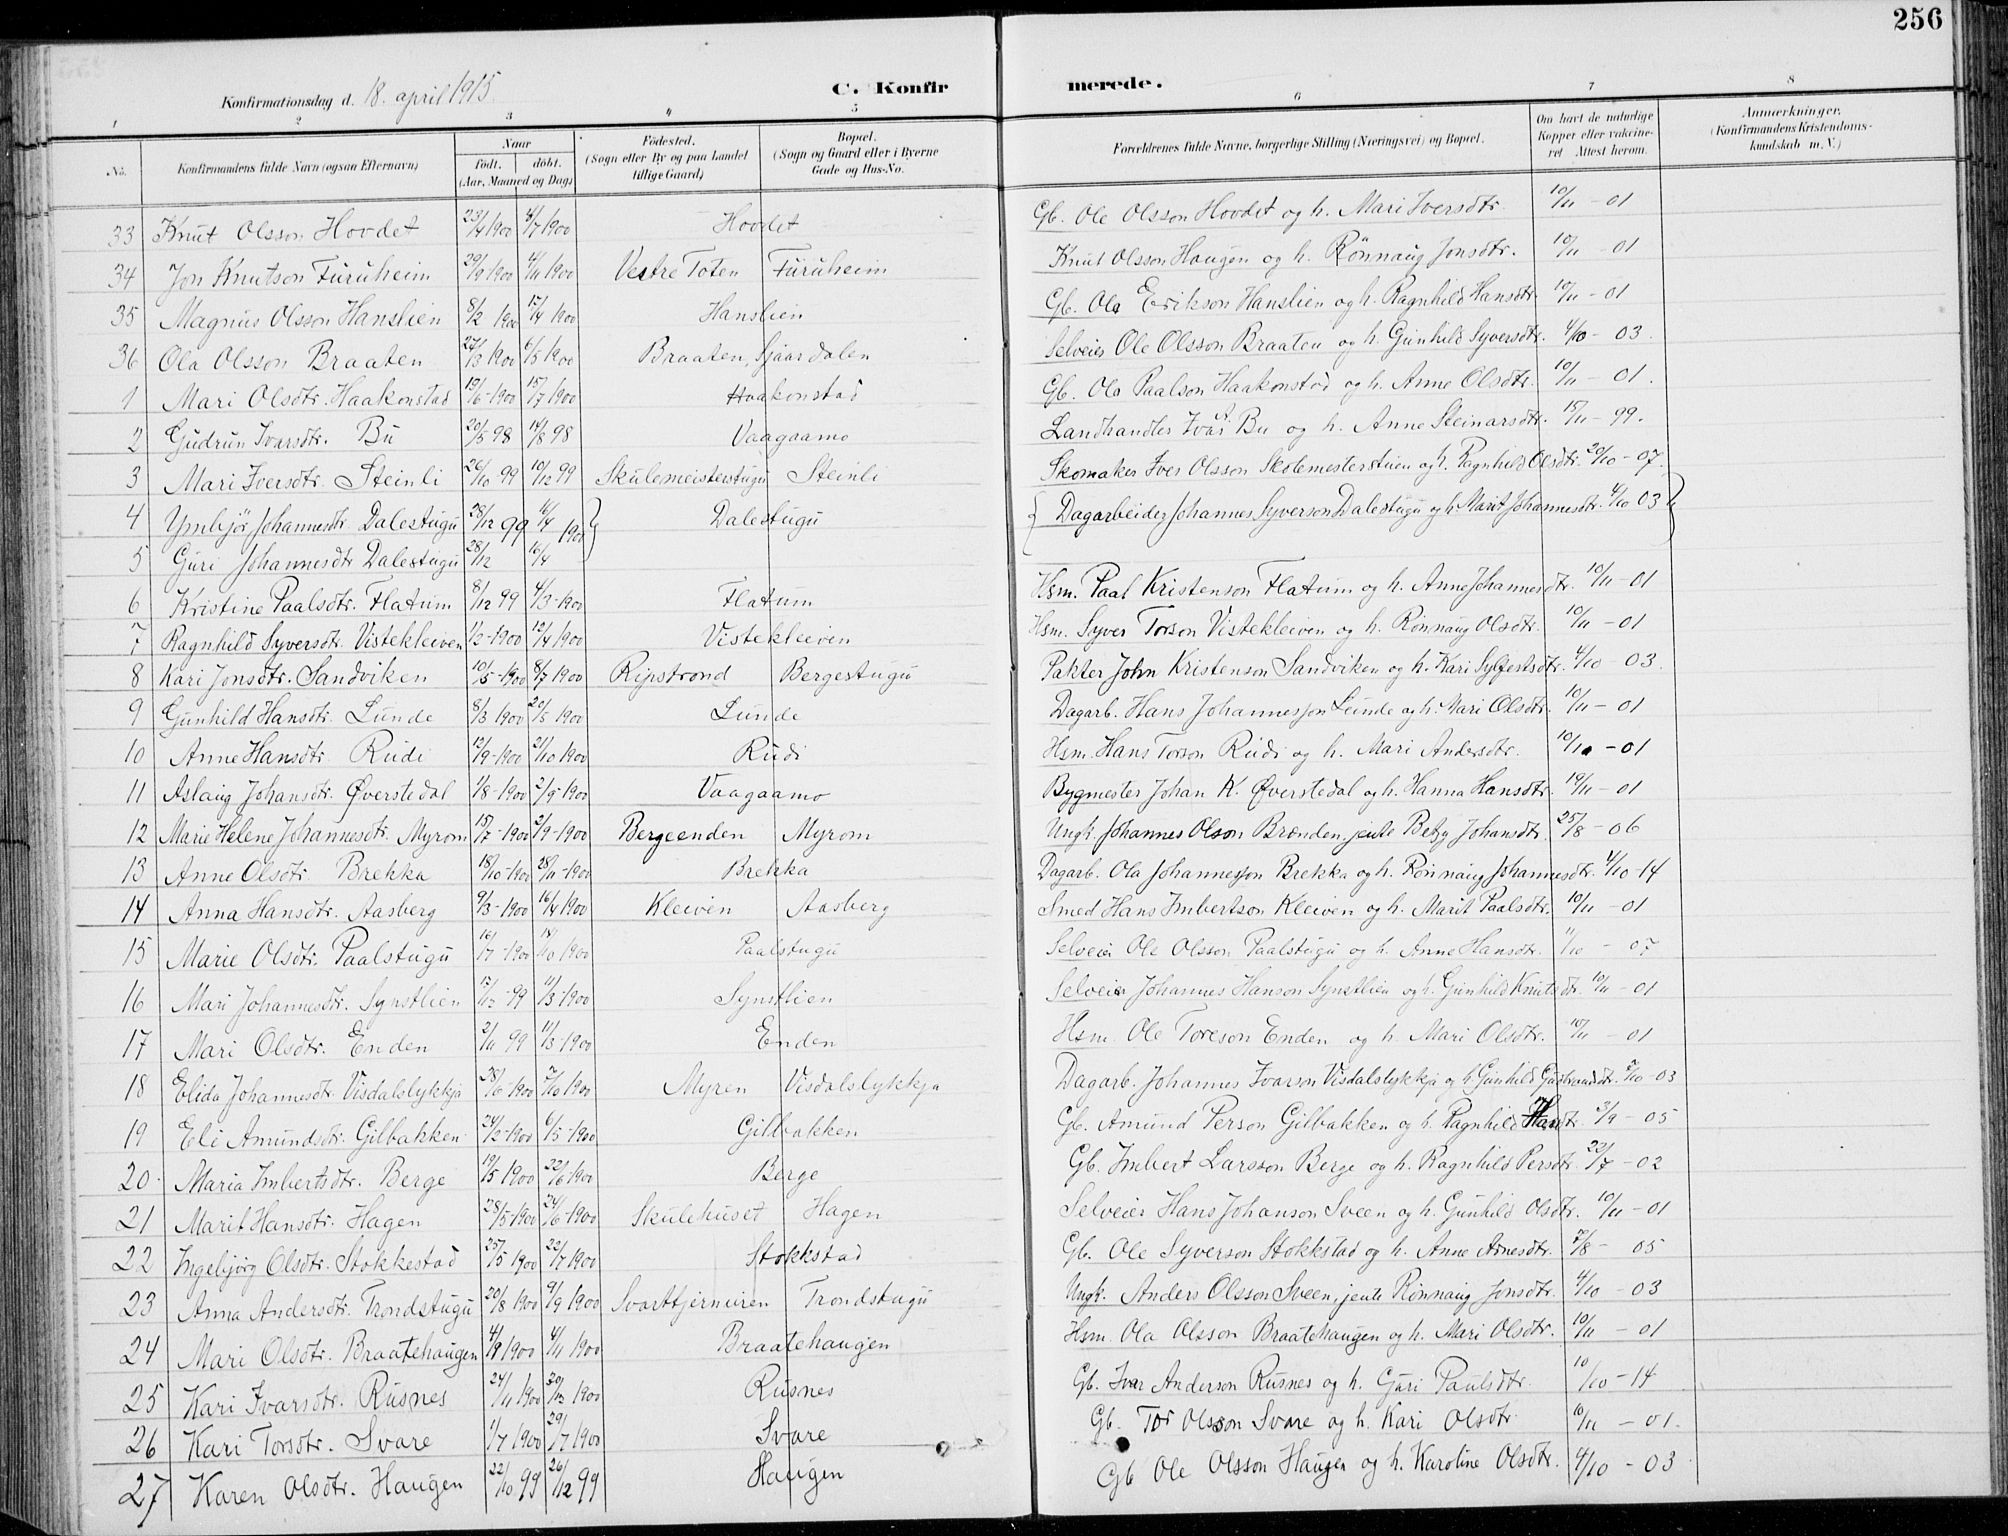 256
Konfirmationsdag d. 18. april 1915.
C. Konfirmerede.
1 2 3 4 5 6 7 8
No. Konfirmandens fulde Navn (ogsaa Efternavn) Naar født. døbt. (Aar, Maaned og Dag) Fødested. (Sogn eller By og paa Landet tillige Gaard) Bopæl. (Sogn og Gaard eller i Byerne Gade og Hus-No. Forældrenes fulde Navne, borgerlige Stilling (Næringsvei) og Bopæl. Om havt de naturlige Kopper eller vaccineret Attest herom. Anmærkninger. (Konfirmandens Kristendomskundskab m. V.)
33 Knut Olsson Hovdet 23/4 1900 8/7 1900 Hovdet Gb. Ole Olsson Hovdet og h. Mari Iversdtr. 10/11 - 01
34 Jon Knutson Furuheim 29/9 1900 4/11 1900 Vestre Toten Furuheim Knut Olsson Haugen og h. Rønnaug Jonsdtr. 10/11 - 01
35 Magnus Olsson Hanslien 8/2 1900 17/4 1900 Hanslien Gb. Ola Erikson Hanslien og h. Ragnhild Hansdtr. 10/11 - 01
36 Ola Olsson Braaten 27/3 1900 6/5 1900 Braaten, Sjaardalen Selveier Ole Olsson Braaten og h. Gunhild Syversdtr. 4/10 - 03.
1 Mari Olsdtr. Haakonstad 19/6 - 1900 15/7 1900 Haakonstad Gb. Ola Paalson Haakonstad og h. Anne Olsdtr. 10/11 - 01.
2 Gudrun Ivarsdtr. Bu 20/5 98 14/8 98 Vaagaamo Landhandler Ivar Bu og h. Anne Steinarsdtr. 15/11 - 99.
3 Mari Iversdtr. Steinli 26/10 99 10/12 99 Skulemeisterstugu Steinli Skomaker Iver Olsson Skolemesterstuen og h. Ragnhild Olsdtr. 20/10 - 07.
4 Ymbjør Johannesdtr. Dalestugu 28/12 99 16/4 1900 } Dalestugu { Dagarbeider Johannes Syverson Dalestugu og h. Marit Johannesdtr. 4/10 03 }
5 Guri Johannesdtr Dalestugu 28/12 16/4
6 Kristine Paalsdtr. Flatum 8/12 99 4/3 - 1900 Flatum Hsm. Paal Kristenson Flatum og h. Anne Johannesdtr. 10/11 - 01
7 Ragnhild Syversdtr. Vistekleiven 1/2 - 1900 12/4 1900 Vistekleiven Hsm. Syver Torson Vistekleiven og h. Rønnaug Olsdtr. 10/11 - 01
8 Kari Jonsdtr. Sandviken 10/5 - 1900 8/7 1900 Ripstrond Bergestugu Pakter John Kristenson Sandviken og h. Kari Sylfestsdtr. 4/10 - 03.
9 Gunhild Hansdtr. Lunde 8/3 1900 20/5 1900 Lunde Dagarb. Hans Johannesson Lunde og h. Mari Olsdtr. 10/11 - 01
10 Anne Hansdtr. Rudi 12/9 - 1900 21/10 1900 Rudi Hsm. Hans Torson Rudi og h. Mari Andersdtr. 10/10 - 01
11 Aslaug Johansdtr. Øverstedal 1/8 - 1900 2/9 - 1900 Vaagaamo Bygmester Johan K. Øverstedal og h. Hanna Hansdtr. 19/11 - 01
12 Marie Helene Johannesdtr. Myrom 15/7 - 1900 2/9 - 1900 Bergeenden Myrom Ungk. Johannes Olson Brænden, jente Betzy Johansdtr. 25/8 - 06
13 Anne Olsdtr. Brekka 18/10 - 1900 28/11 - 1900 Brekka Dagarb. Ola Johannesson Brekka og h. Rønnaug Johannesdtr. 4/10 - 14
14 Anna Hansdtr. Aasberg 9/3 - 1900 16/4 1900 Kleiven Aasberg Smed Hans Imbertson Kleiven og h. Marit Paalsdtr. 10/11 - 01
15 Marie Olsdtr. Paalstugu 16/7 - 1900 14/10 1900 Paalstugu Selveier Ole Olsson Paalstugu og h. Anne Hansdtr. 11/10 - 07
16 Mari Johannesdtr. Synstlien 17/12 - 99 11/3 - 1900 Synstlien Selveier Johannes Hanson Synstlien og h. Gunhild Knutsdtr. 10/11 - 01
17 Mari Olsdtr. Enden 2/11 99 11/3 - 1900 Enden Hsm. Ole Toreson Enden og h. Mari Olsdtr. 10/11 - 01
18 Elida Johannesdtr. Visdalslykkja 28/6 - 1900 7/10 1900 Myren Visdalslykkja Dagarb. Johannes Ivarson Visdalslykkja og h. Gunhild Gudbrandsdtr. 2/10 - 03
19 Eli Amundsdtr. Gilbakken 24/2 - 1900 6/5 - 1900 Gilbakken Gb. Amund Person Gilbakken og h. Ragnhild Hansdtr. 3/9 - 05
20. Maria Imbertsdtr. Berge 19/5 1900 22/6 - 1900 Berge Gb. Imbert Larsson Berge og h. Ragnhild Persdtr. 23/7 - 02
21 Marit Hansdtr. Hagen 28/5 - 1900 24/6 - 1900 Skulehuset Hagen Selveier Hans Johanson Sveen og h. Gunhild Olsdtr. 10/11 - 01
22 Ingebjørg Olsdtr. Stokkestad 25/5 1900 22/7 1900 Stokkstad Gb. Ole Syverson Stokkstad og h. Anne Arnesdtr. 7/8 - 05
23 Anna Andersdtr. Trondstugu 20/8 1900 9/9 1900 Svarttjernuren Trondstugu Ungk. Anders Olsson Sveen, jente Rønnaug Jonsdtr. 4/10 - 03
24 Mari Olsdtr. Braatehaugen 4/9 1900 4/11 1900 Braatehaugen Hsm. Ola Olsson Braatehaugen og h. Mari Olsdtr. 10/11 - 01
25 Kari Ivarsdtr. Rusnes 24/11 1900 30/12 1900 Rusnes Gb. Ivar Anderson Rusnes og h. Guri Paulsdtr. 10/10 - 14
26 Kari Torsdtr. Svare 1/7 1900 29/7 1900 Svare Gb. Tor Olsson Svare og h. Kari Olsdtr. 10/11 - 01.
27 Karen Olsdtr. Haugen 22/10 99 26/12 99 Haugen Gb Ole Olsson Haugen og h. Karoline Olsdtr. 4/10 - 03